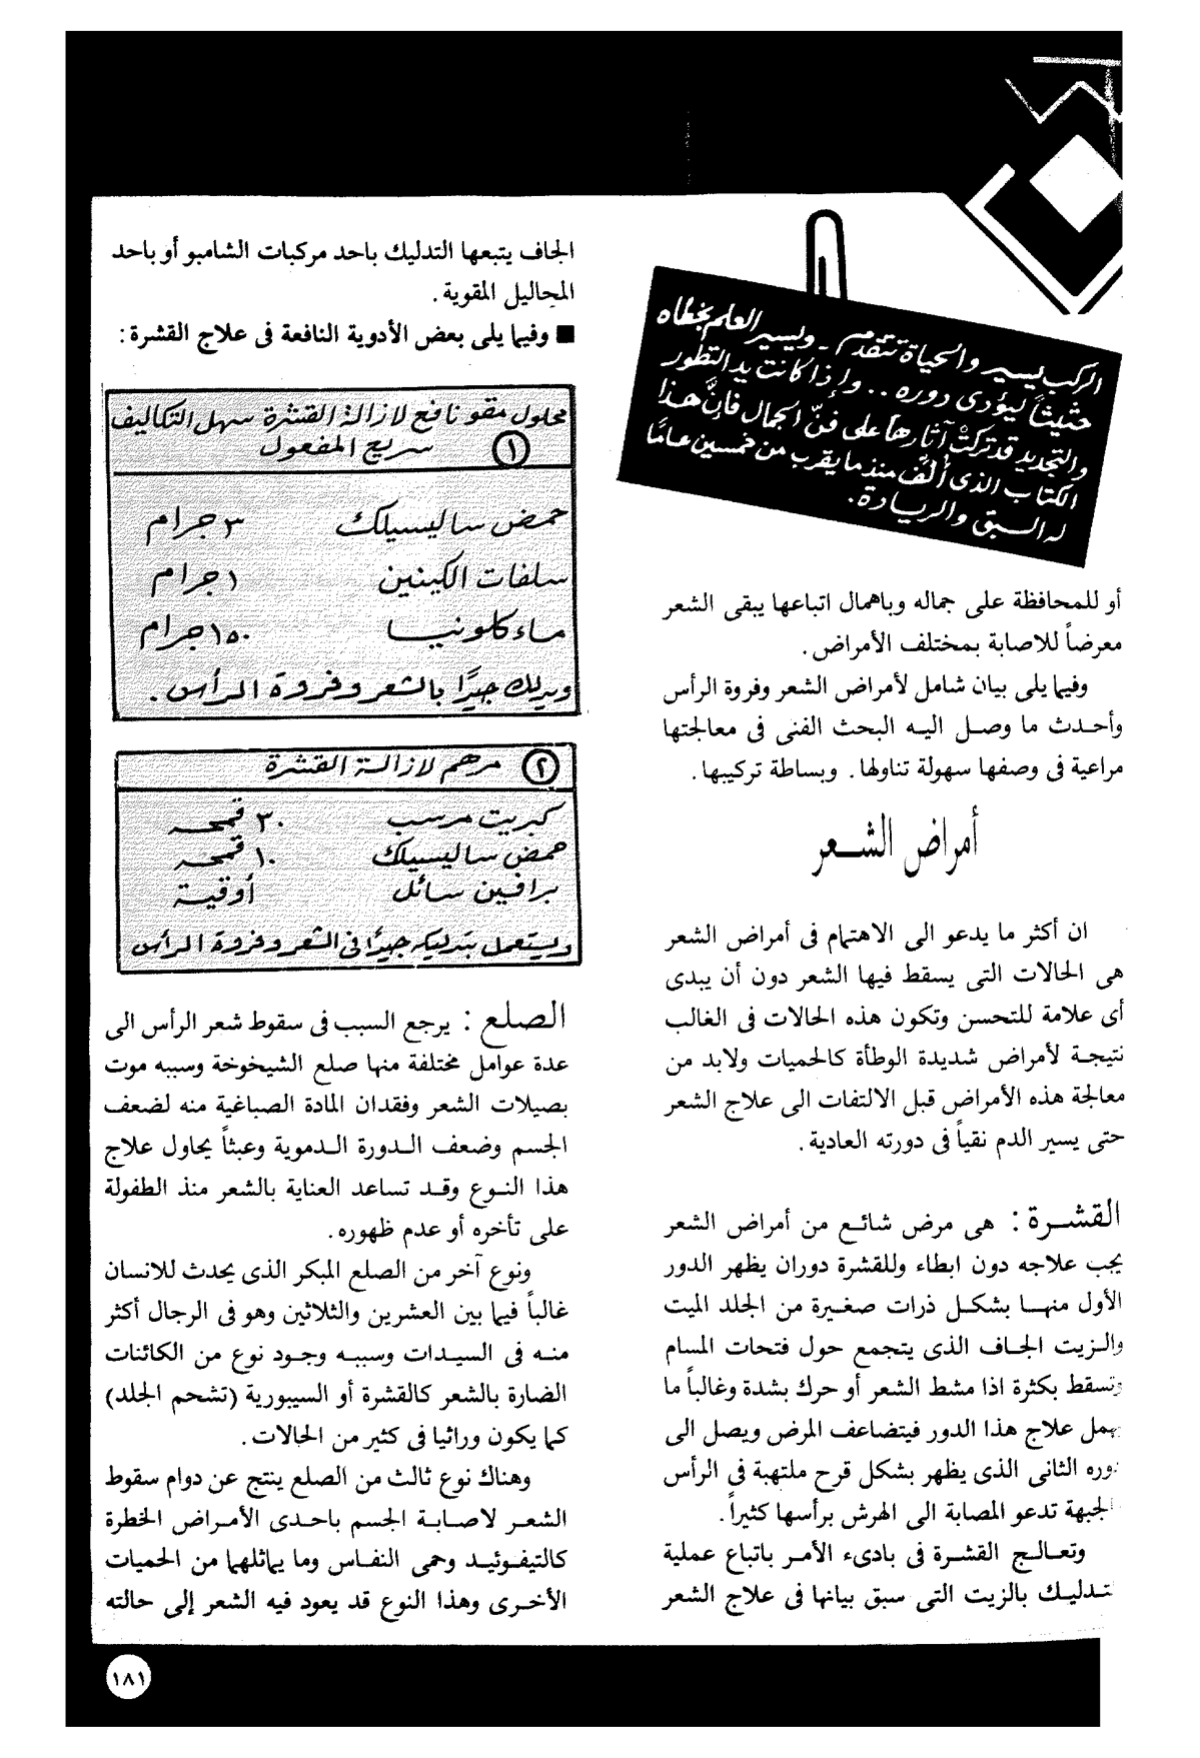 الركب يسير والحياة تتقدم - ويسير العلم بخطاه
حثيثاً ليؤدى دوره .. وإذا كانت يد التطور
والتجديد قد تركت آثارها على فنّ الجمال فإنَّ هذا
الكتاب الذى أُلِّف منذ ما يقرب من خمسين عامًا
له السبق والريادة.
أو للمحافظة على جماله وباهمال اتباعها يبقى الشعر
معرضاً للاصابة بمختلف الأمراض.
وفيما يلى بيان شامل لأمراض الشعر وفروة الرأس
وأحدث ما وصل اليه البحث الفنى فى معالجتها
مراعية فى وصفها سهولة تناولها. وبساطة تركيبها.
أمراض الشعر
ان أكثر ما يدعو الى الاهتمام فى أمراض الشعر
هى الحالات التى يسقط فيها الشعر دون أن يبدى
أى علامة للتحسن وتكون هذه الحالات فى الغالب
نتيجة لأمراض شديدة الوطأة كالحميات ولابد من
معالجة هذه الأمراض قبل الالتفات الى علاج الشعر
حتى يسير الدم نقياً فى دورته العادية.
القشرة: هى مرض شائع من أمراض الشعر
يجب علاجه دون ابطاء وللقشرة دوران يظهر الدور
الأول منها بشكل ذرات صغيرة من الجلد الميت
والزيت الجاف الذى يتجمع حول فتحات المسام
وتسقط بكثرة اذا مشط الشعر أو حرك بشدة وغالباً ما
يهمل علاج هذا الدور فيتضاعف المرض ويصل الى
دوره الثانى الذى يظهر بشكل قرح ملتهبة فى الرأس
الجبهة تدعو المصابة الى الهرش برأسها كثيراً.
وتعالج القشرة فى بادىء الأمر باتباع عملية
تدليك بالزيت التى سبق بيانها فى علاج الشعر
الجاف يتبعها التدليك باحد مركبات الشامبو أو باحد
المحاليل المقوية.
■ وفيما يلى بعض الأدوية النافعة فى علاج القشرة:
محلول مقو نافع لازالة القشرة سهل التكاليف
١ سريع المفعول
حمض ساليسيلك ٣ جرام
سلفات الكينين ١ جرام
ماء كلونيا ١٥٠ جرام
ويدلك جيدًا بالشعر وفروة الرأس.
٢ مرهم لازالة القشرة
كبريت مرسب ٣٠ قمحه
حمض ساليسيلك ١٠ قمحه
برافين سائل أوقية
ويستعمل بتدليكه جيدًا فى الشعر وفروة الرأس
الصلع: يرجع السبب فى سقوط شعر الرأس الى
عدة عوامل مختلفة منها صلع الشيخوخة وسببه موت
بصيلات الشعر وفقدان المادة الصباغية منه لضعف
الجسم وضعف الدورة الدموية وعبثاً يحاول علاج
هذا النوع وقد تساعد العناية بالشعر منذ الطفولة
على تأخره أو عدم ظهوره.
ونوع آخر من الصلع المبكر الذى يحدث للانسان
غالباً فيما بين العشرين والثلاثين وهو فى الرجال أكثر
منه فى السيدات وسببه وجود نوع من الكائنات
الضارة بالشعر كالقشرة أو السيبورية (تشحم الجلد)
كما يكون وراثيا فى كثير من الحالات.
وهناك نوع ثالث من الصلع ينتج عن دوام سقوط
الشعر لاصابة الجسم باحدى الأمراض الخطرة
كالتيفوئيد وحمى النفاس وما يماثلهما من الحميات
الأخرى وهذا النوع قد يعود فيه الشعر إلى حالته
١٨١